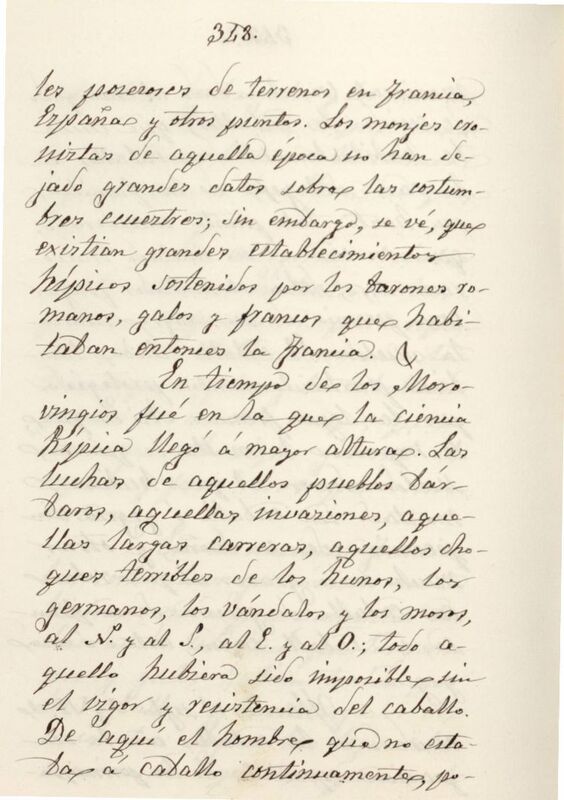 348.
les poseores de terrenos en Francia,
España y otros puntos. Los monjes cro-
nistas de aquella época no han de-
jado grandes datos sobre las costum-
bres ecuestres; sin embargo, se vé, que
existian grandes establecimientos
hípicos sostenidos por los barones ro-
manos, galos y francos que habi-
taban entonces la Francia.
En tiempo de los Moro-
vingios fué en la que la ciencia
hípica llegó á mayor altura. Las
luchas de aquellos pueblos bár-
baros, aquellas invasiones, aque-
llas largas carreras, aquellos cho-
ques terribles de los hunos, los
germanos, los vándalos y los moros,
al N. y al S., al E. y al O.; todo a-
quello hubiera sido imposible sin
el vigor y resistencia del caballo.
De aquí el hombre que no esta-
ba á caballo continuamente, po-